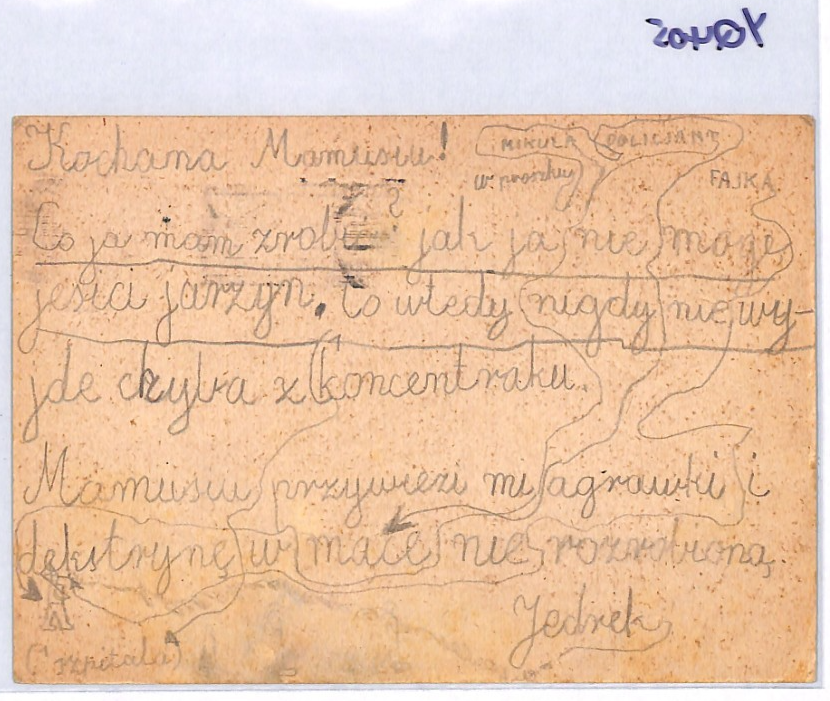 Kochana Mamusiu!
MIKUŁA POLICJANT
w proszku FAJKA
Co ja mam zrobić? jak ja nie mogę
jeści jarzyn. Co wtedy nigdy nie wy-
jde chyba z koncentraku.
Mamusiu przywiezi mi agrawki i
dekstrynę w mące nie rozrobioną
Jędrek
(szpitala)